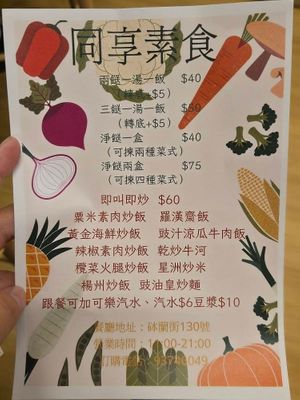 同享素食
兩餸一湯一飯 $40
（轉底+$5）
三餸一湯一飯 $50
（轉底+$5）
淨餸一盒 $40
（可揀兩種菜式）
淨餸兩盒 $75
（可揀四種菜式）
即叫即炒 $60
粟米素肉炒飯 羅漢齋飯
黃金海鮮炒飯 豉汁涼瓜牛肉飯
辣椒素肉炒飯 乾炒牛河
欖菜火腿炒飯 星洲炒米
楊州炒飯 豉油皇炒麵
跟餐可加可樂汽水、汽水$6豆漿$10
餐廳地址：砵蘭街130號
營業時間：-21:00
訂購